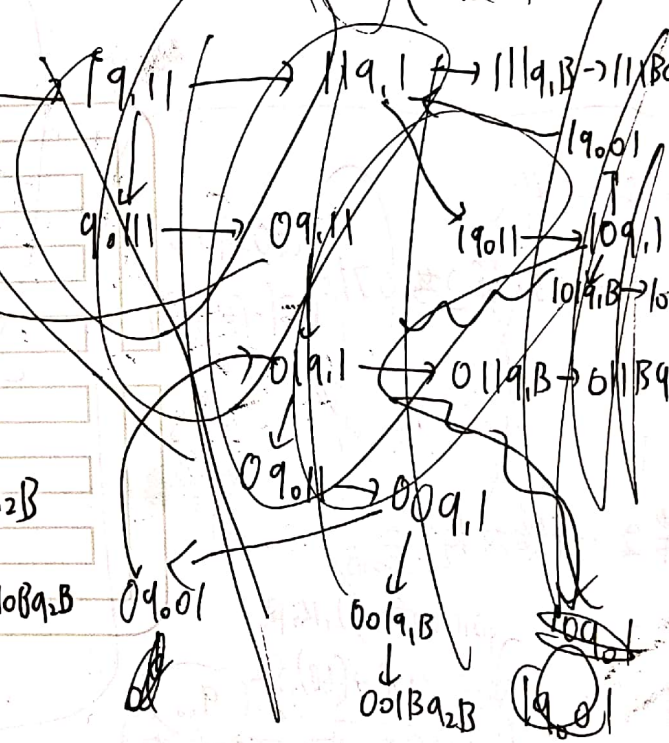 1q₁11 → 11q₁1 → 111q₁B → 111B
1q₀01
q₀111 → 0q₁11
1q₀11 → 10q₁1
101q₁B → 10
01q₁1 → 011q₁B → 011Bq
0q₀11 → 00q₁1
₂B
0Bq₂B 0q₀01
001q₁B
001Bq₂B
1q₀01